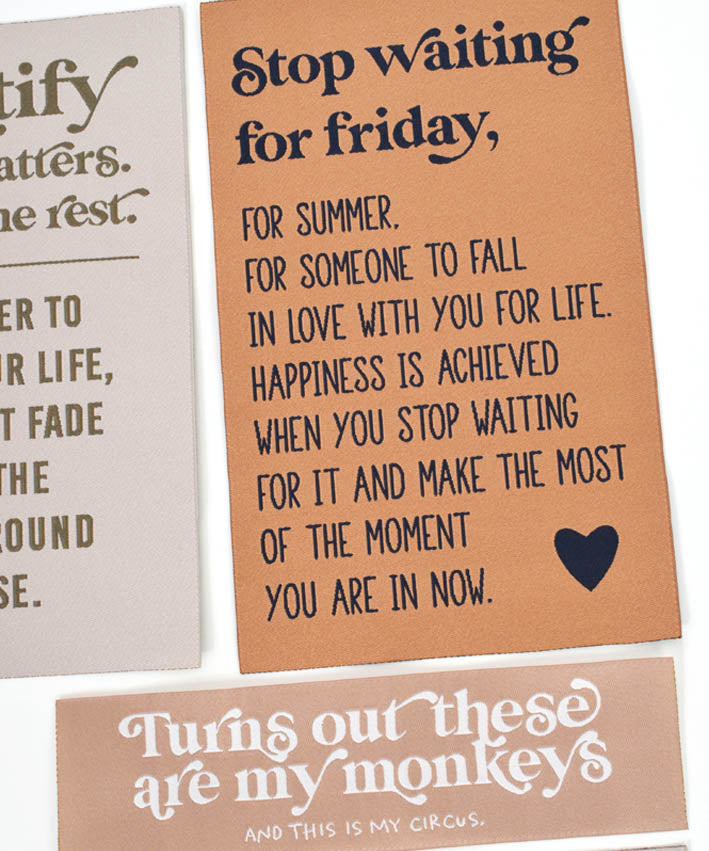 tify
atters.
ne rest.
ER TO
UR LIFE,
T FADE
THE
ROUND
SE.
Stop waiting
for friday,
FOR SUMMER,
FOR SOMEONE TO FALL
IN LOVE WITH YOU FOR LIFE.
HAPPINESS IS ACHIEVED
WHEN YOU STOP WAITING
FOR IT AND MAKE THE MOST
OF THE MOMENT
YOU ARE IN NOW.
Turns out these
are my monkeys
AND THIS IS MY CIRCUS.